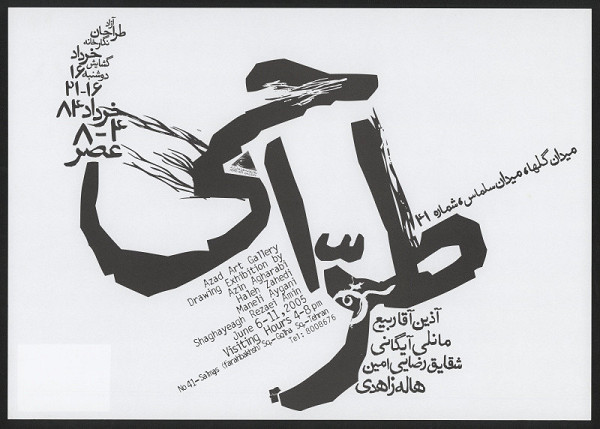 آزاد
طراحان
نگارخانه
گشایش خرداد
دوشنبه ۱۶
۱۶-۲۱
خرداد ۸۴
۴-۸
عصر
میدان گلها، میدان سلماس، شماره ۴۱
Azad Art Gallery
Drawing Exhibition by
Azin Agharabi
Haleh Zahedi
Maneli Aygani
Shaghayeagh Rezaei Amin
June 6-11, 2005
Visiting Hours 4-8 pm
No 41-Salmas (Farahbakhsh) Sq-Golha Sq-Tehran
Tel: 8008676
آذین آقاربیع
مانلی آیگانی
شقایق رضایی امین
هاله زاهدی